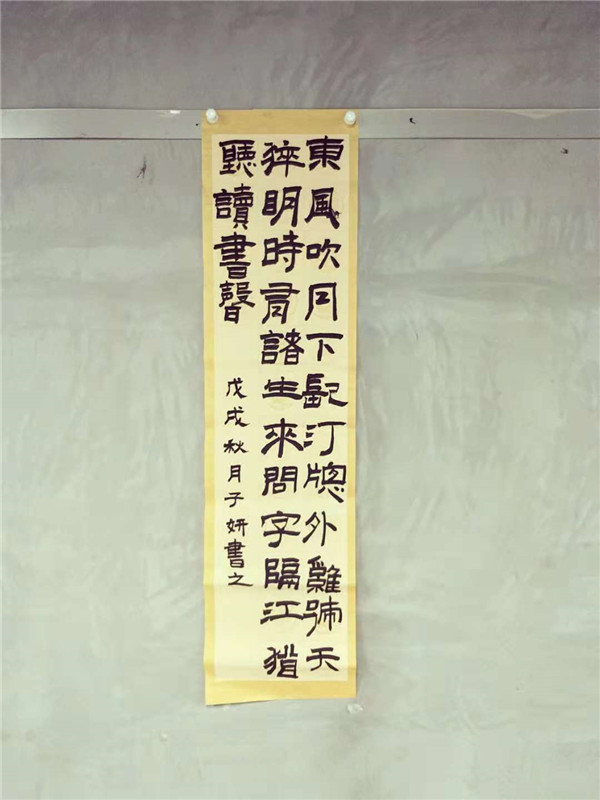 東風吹月下汀牕外雞號天
猝明時有諸生來問字隔江猶
聽讀書聲
戊戌秋月子妍書之